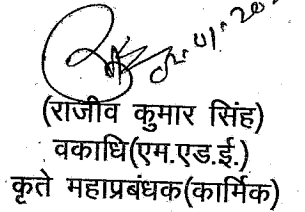 (राजीव कुमार सिंह)
वकाधि(एम.एड.ई.)
कृते महाप्रबंधक(कार्मिक)